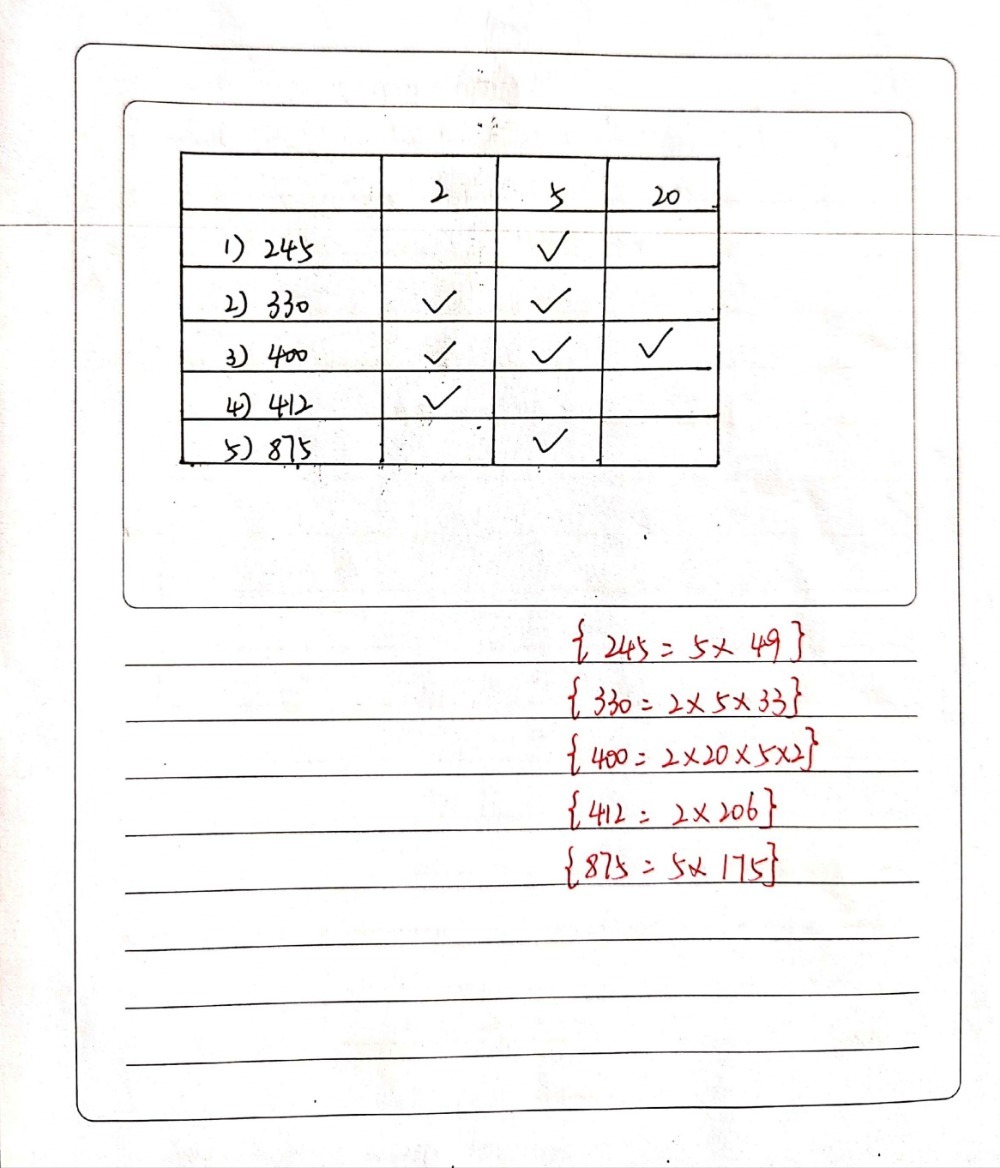 2 5 20
1) 245 ✓
2) 330 ✓ ✓
3) 400 ✓ ✓ ✓
4) 412 ✓
5) 875 ✓
{ 245 = 5 × 49 }
{ 330 = 2 × 5 × 33 }
{ 400 = 2 × 20 × 5 × 2 }
{ 412 = 2 × 206 }
{ 875 = 5 × 175 }